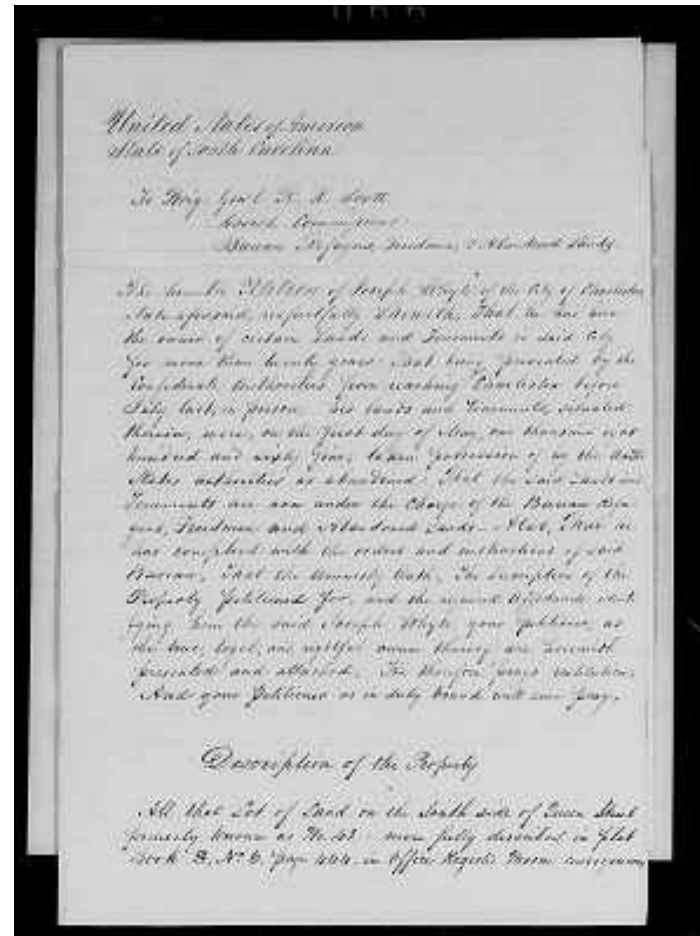 United States of America
State of South Carolina
To Brig. Genl R. K. Scott
Assist Commissioner
Bureau Refugees, Freedmen, & Abandoned Lands
The humble Petition of Joseph Whyte of the City of Charleston
State aforesaid, respectfully Showeth, That he has been
the owner of certain Lands and Tenements in said City
for more than twenty years. That being prevented by the
Confederate Authorities from reaching Charleston before
July last, in person his lands and Tenements, situated
therein, were, on the first day of May, one thousand eight
hundred and sixty five, taken possession of by the United
States authorities as abandoned. That the said Lands and
Tenements are now under the Charge of the Bureau Refu
gees, Freedmen and Abandoned Lands. Also, That he
has complied with the orders and instructions of said
Bureau, That the Amnesty Oath, the description of the
Property Petitioned for, and the Affidavits ident
ifying him the said Joseph Whyte your petitioner as
the true, loyal, and rightful owner thereof are herewith
presented and attached. He therefore prays restitution.
And your Petitioner as in duty bound will ever pray.
Description of the Property
All that Lot of Land on the South side of Queen Street
formerly known as No. 43 more fully described in Plat
Book No 6, page 444 in Office Register Mesne conveyance